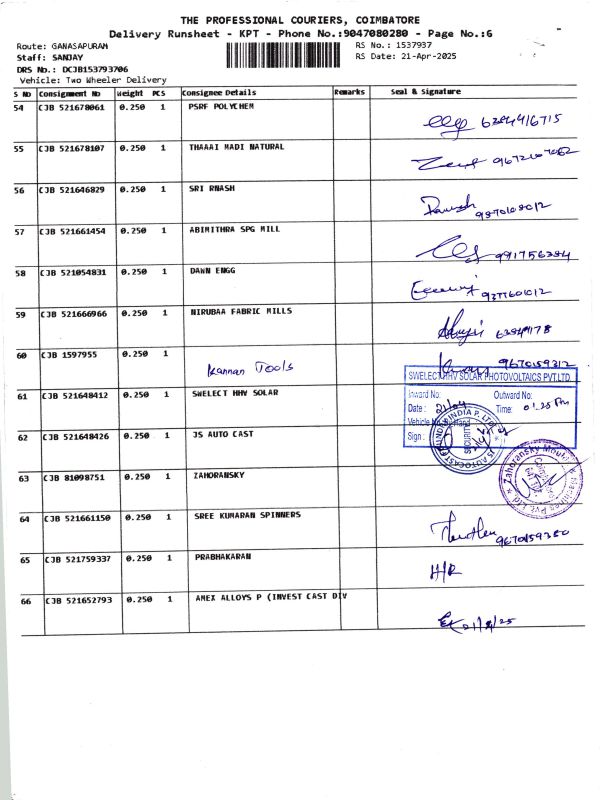 THE PROFESSIONAL COURIERS, COIMBATORE
Delivery Runsheet - KPT - Phone No.:9047080280 - Page No.:6
Route: GANASAPURAM RS No.: 1537937
Staff: SANJAY RS Date: 21-Apr-2025
DRS No.: DCJB153793706
Vehicle: Two Wheeler Delivery
S No Consignment No Weight PCS Consignee Details Remarks Seal & Signature
54 CJB 521678061 0.250 1 PSRF POLYCHEM
6394416715
55 CJB 521678107 0.250 1 THAAAI MADI NATURAL
56 CJB 521646829 0.250 1 SRI RNASH
57 CJB 521661454 0.250 1 ABIMITHRA SPG MILL
991756394
58 CJB 521054831 0.250 1 DAWN ENGG
59 CJB 521666966 0.250 1 NIRUBAA FABRIC MILLS
60 CJB 1597955 0.250 1 Kannan Tools
9670159312
61 CJB 521648412 0.250 1 SWELECT HHV SOLAR
SWELECT HHV SOLAR PHOTOVOLTAICS PVT.LTD.
Inward No: Outward No:
Date: 21/04 Time: 01.25 Pm
Sign :
62 CJB 521648426 0.250 1 JS AUTO CAST
SECURITY
63 CJB 81098751 0.250 1 ZAHORANSKY
64 CJB 521661150 0.250 1 SREE KUMARAN SPINNERS
9670159380
65 CJB 521759337 0.250 1 PRABHAKARAN
H/R
66 CJB 521652793 0.250 1 AMEX ALLOYS P (INVEST CAST DIV
21/4/25